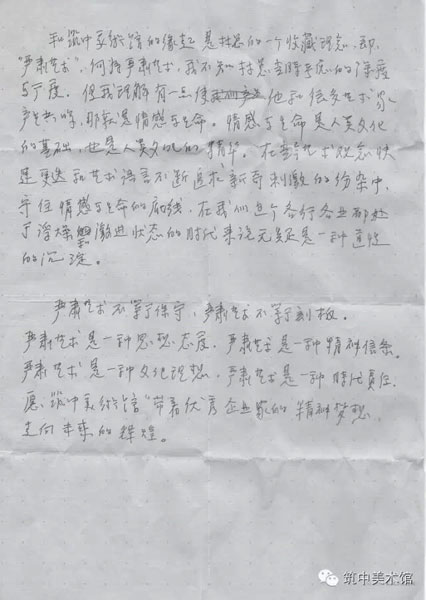 和筑中美术馆的缘起是杜总的一个收藏理念，即，
“严肃艺术”，何谓严肃艺术，我不知杜总当时予以的深度
与广度。但我理解有一点使他和许多艺术家
产生共鸣，那就是情感与生命。情感与生命是人类文化
的基础，也是人类文明的精华。在当今艺术观念快
速更迭和艺术语言不断追求新奇刺激的纷杂中，
守住情感与生命的底线，在我们这个各行各业都处
于浮燥激进状态的时代来说无疑是一种道性
的沉淀。
严肃艺术不等于保守，严肃艺术不等于刻板。
严肃艺术是一种思想态度，严肃艺术是一种精神信条。
严肃艺术是一种文化理想，严肃艺术是一种时代责任。
愿“筑中美术馆”带着优秀企业家的精神梦想，
走向未来的辉煌。
筑中美术馆